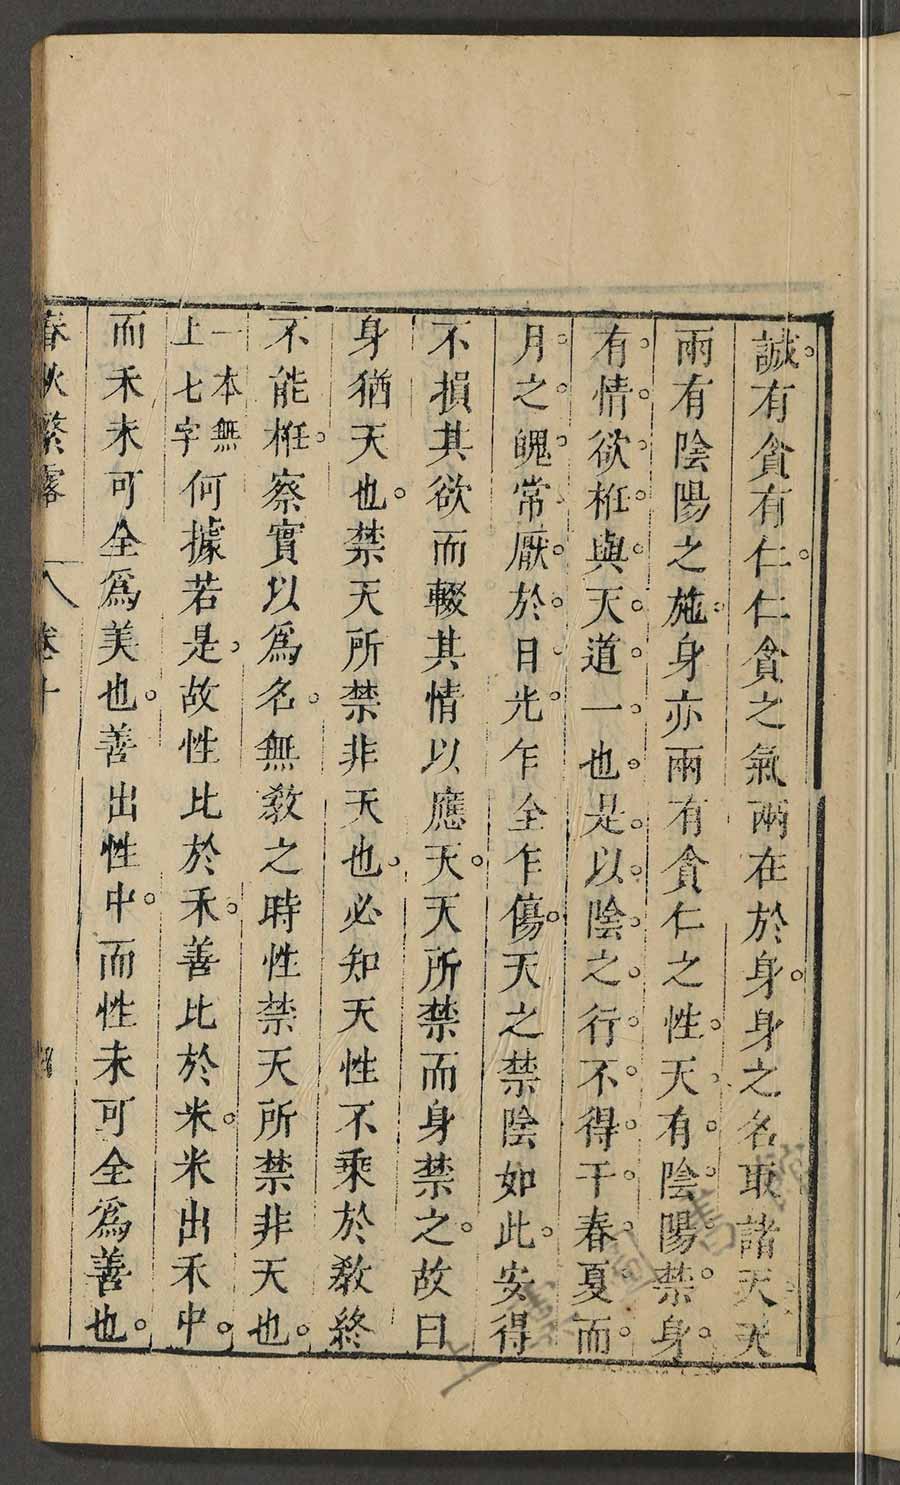 誠有貪有仁仁貪之氣兩在於身身之名取諸天天
兩有陰陽之施身亦兩有貪仁之性天有陰陽禁身
有情欲栣與天道一也是以陰之行不得干春夏而
月之魄常厭於日光乍全乍傷天之禁陰如此安得
不損其欲而輟其情以應天天所禁而身禁之故曰
身猶天也禁天所禁非天也必知天性不乘於教終
不能栣察實以爲名無教之時性禁天所禁非天也
一本無
上七字
何據若是故性比於禾善比於米米出禾中
而禾未可全爲美也善出性中而性未可全爲善也
春秋繁露 卷十